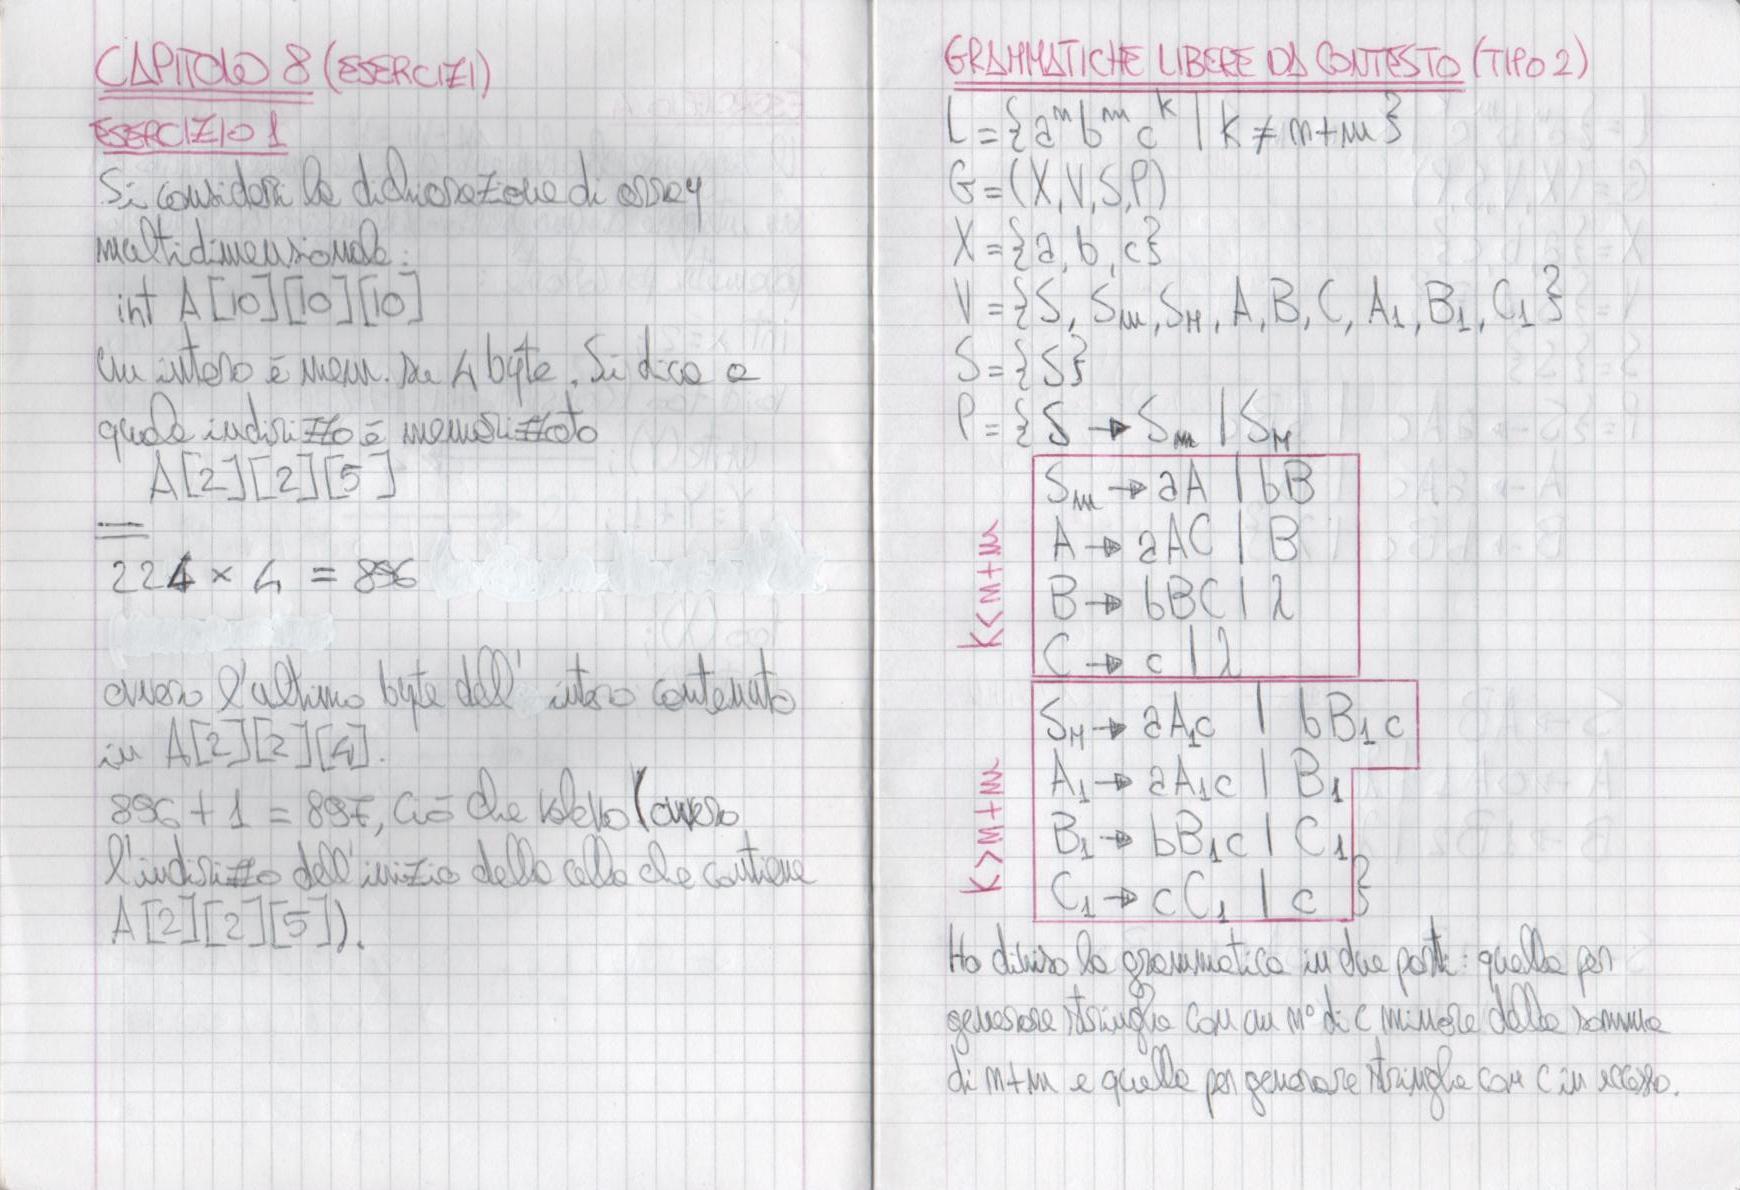 CAPITOLO 8 (ESERCIZI)
ESERCIZIO 1
Si consideri la dichiarazione di array
multidimensionale:
int A[10][10][10]
Un intero è mem. su 4 byte. Si dica a
quale indirizzo è memorizzato
A[2][2][5]
224 × 4 = 896
ovvero l'ultimo byte dell' intero contenuto
in A[2][2][4].
896 + 1 = 897, ciò che volevo (ovvero
l'indirizzo dell'inizio della cella che contiene
A[2][2][5]).
GRAMMATICHE LIBERE DA CONTESTO (TIPO 2)
L = {aⁿ bᵐ cᵏ | k ≠ n+m}
G = (X,V,S,P)
X = {a, b, c}
V = {S, Sm, SM, A, B, C, A₁, B₁, C₁}
S = {S}
P = {S → Sm | SM
Sm → aA | bB
A → aAC | B
B → bBC | λ
C → c | λ
K<n+m
SM → aA₁c | bB₁c
A₁ → aA₁c | B₁
B₁ → bB₁c | C₁
C₁ → cC₁ | c }
K>n+m
Ho diviso la grammatica in due parti: quella per
generare stringhe con un n° di c minore della somma
di n+m e quella per generare stringhe con c in eccesso.